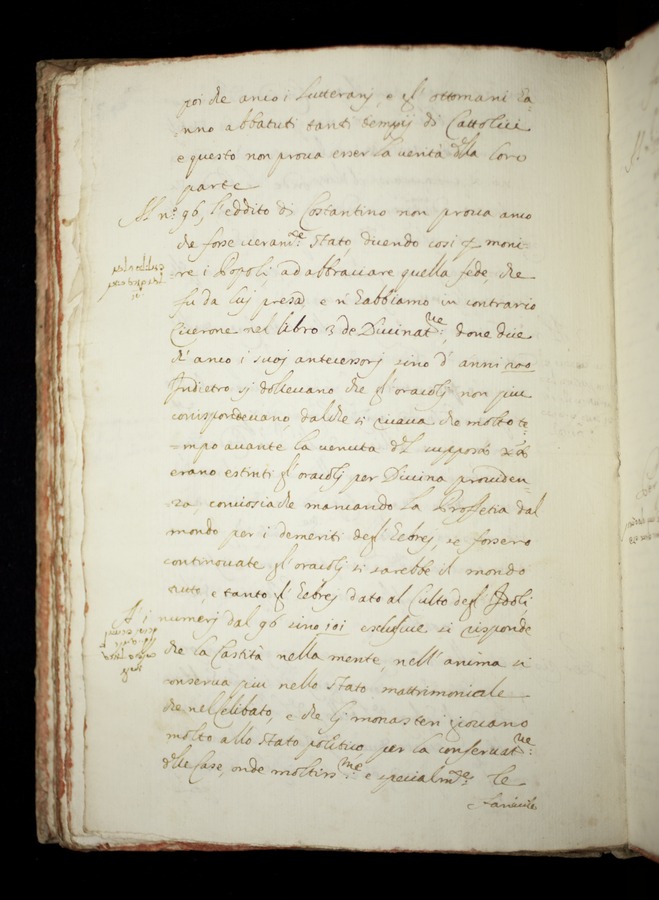 poi che anco i Lutterani, e gl' ottomani ha=
nno abbatuti tanti tempij di Cattolici
e questo non prova esser la verità dlla loro
parte
Al n.º 96, l'eddito di Costantino non prova anco
che forse veram.te stato dicendo così p moni=
re i Popoli ad abbraciare quella fede, che
fù da lui presa, e n' habbiamo in contrario
Cicerone nel libro 3 de Divinat.ne, dove dice
ch' anco i suoi antecessorj sino d' anni 200
Indietro si dollevano che gl' oracolj non piu
corrispondevano, dal che si cava che molto te=
=mpo avante la venuta del
erano estinti gl' oracolj per Divina providen=
za conciosia che mancando la Proffetia dal
mondo per i demeriti degl' Hebrej, se fossero
continovate gl' oracolj si sarebbe il mondo
tutto, e tanto gl' Hebrej dato al Culto degl' Idoli,
A i numerj dal 96 sino 101 esclusive si risponde
che la Castità nella mente, nell' anima si
conserva piu nello stato mattrimoniale
che nel Celibato, e che lj monasterj giovano
molto allo stato politico per la conservat.ne
dlle Case, onde moltiss.me e specialm.te le